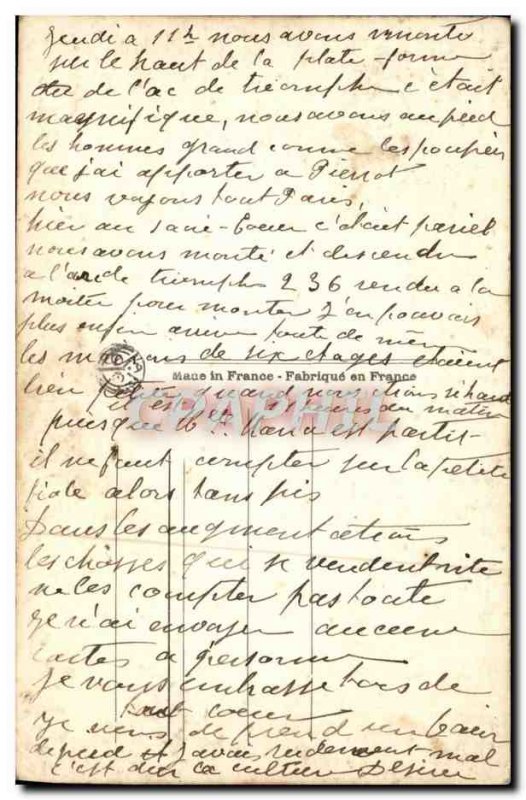 Jeudi a 11h nous avons monté
sur le haut de la plate-forme
de l'ac de triomphe c'était
magnifique, nous avons au pied
les hommes grand comme les poupées
que j'ai apporter a Pierrot
nous voyons tout Paris,
hier au Sacré-Coeur c'était pareil
nous avons monté et descendu
a l'arc de triomphe 236 rendu a la
moitié pour monter J'en pouvais
plus enfin arrivé toute de même
les maisons de six étages étaient
Made in France - Fabriqué en France
bien petite quand nous étions si haut
il est
puisque Mr. est partis
il ne faut compter sur la petite
fiole alors tans pis
Dans les augmentations
les choses qui se vendent vite
ne les compter pas toute
Je n'ai envoyer aucune
cartes a personne
Je vous embrasse tous de
tout coeur
Je viens de prend un bain
de pied j'avais rudement mal
c'est dur la culture Désiré